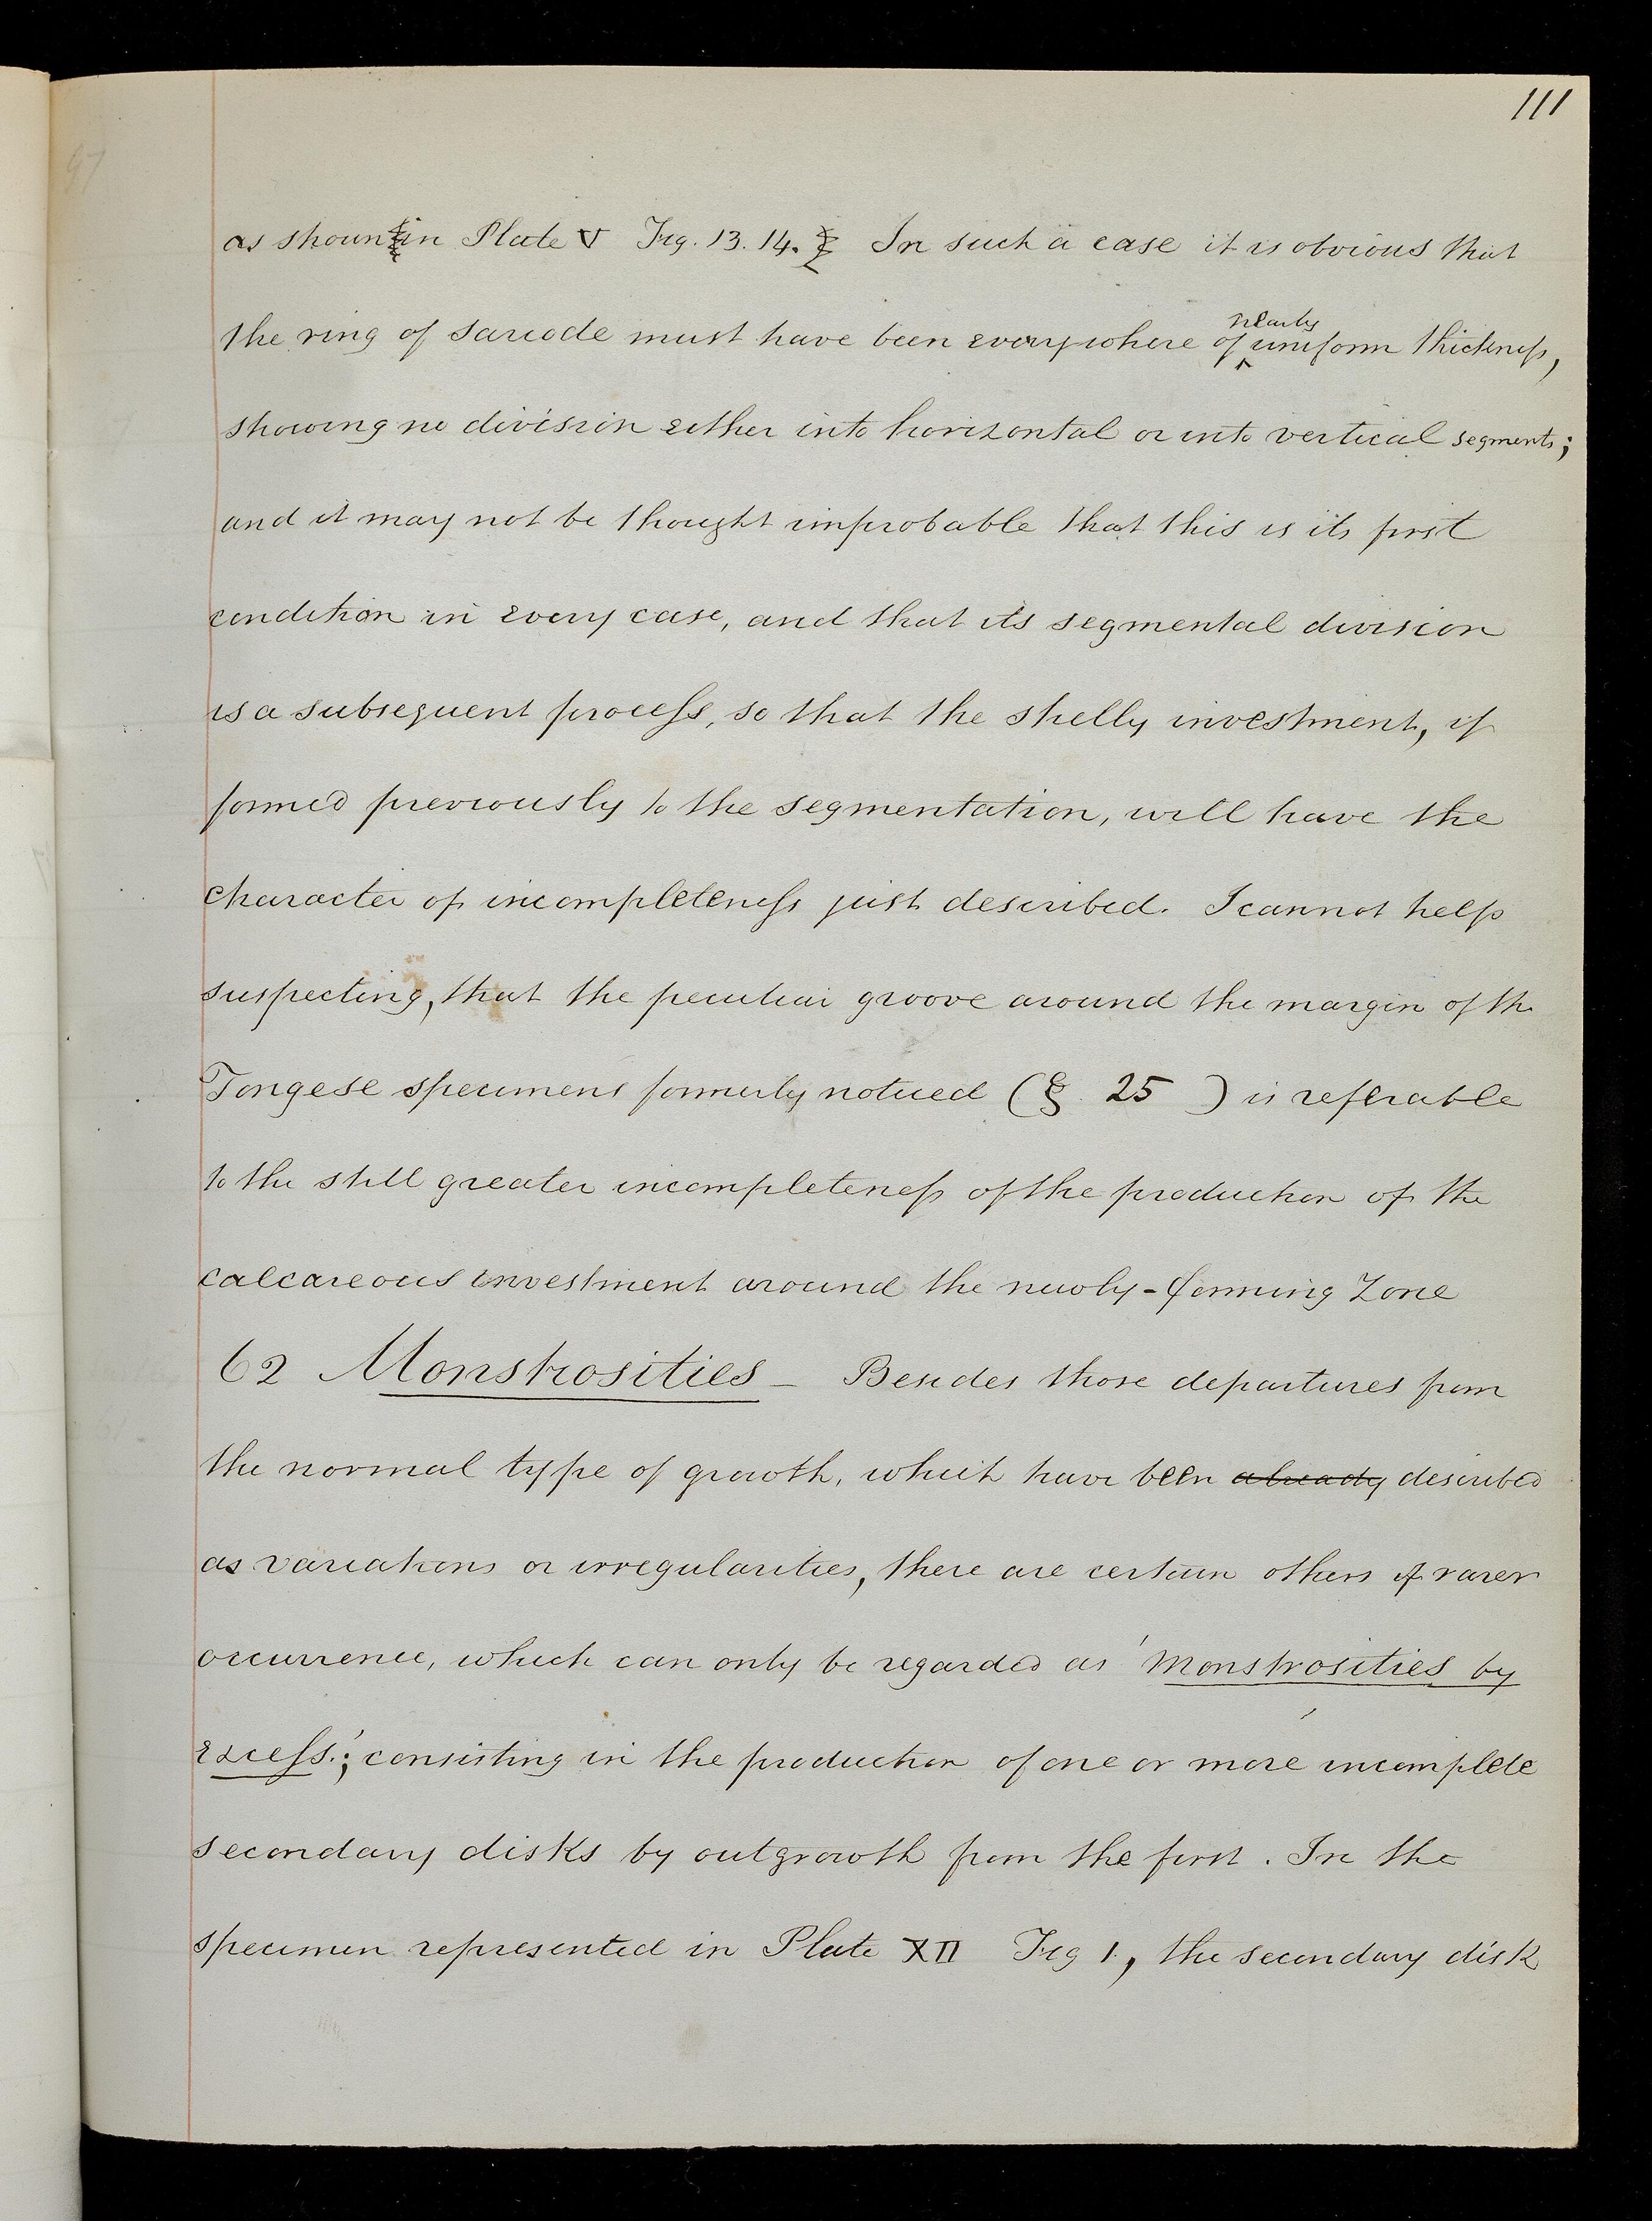 111
as shown in Plate V Fig. 13. 14. In such a case it is obvious that
the ring of sarcode must have been everywhere of nearly uniform thickness,
showing no division either into horizontal or into vertical segments;
and it may not be thought improbable that this is its first
condition in every case, and that its segmental division
is a subsequent process, so that the shelly investment, if
formed previously to the segmentation, will have the
character of incompleteness just described. I cannot help
suspecting, that the peculiar groove around the margin of the
Tongese specimens formerly noticed (§. 25 ) is referable
to the still greater incompleteness of the production of the
calcareous investment around the newly-forming Zone
62 Monstrosities – Besides those departures from
the normal type of growth, which have been already described
as variations or irregularities, there are certain others of rarer
occurrence, which can only be regarded as 'Monstrosities by
excess.'; consisting in the production of one or more incomplete
secondary disks by outgrowth from the first. In the
specimen represented in Plate XII Fig 1., the secondary disk